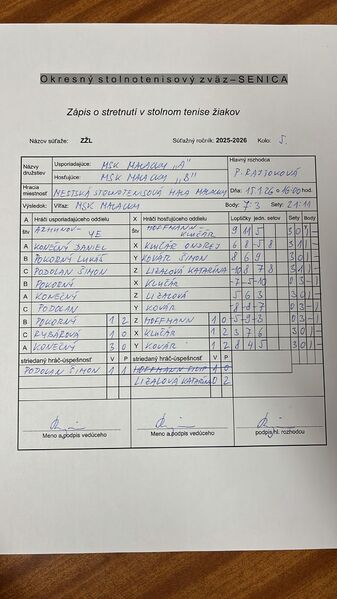 Okresný stolnotenisový zväz – SENICA
Zápis o stretnutí v stolnom tenise žiakov
Názov súťaže: ZŽL Súťažný ročník: 2025-2026 Kolo: 5.
Názvy družstiev Usporiadajúce: MSK MALACKY "A" Hlavný rozhodca
Hosťujúce: MSK MALACKY "B" P. RAJSOKOVÁ
Hracia miestnosť MESTSKÁ STOLNOTENISOVÁ HALA MALACKY Dňa: 15.1.26 o 16:00 hod.
Výsledok: Víťaz: MSK MALACKY Body: 7:3 Sety: 21:11
A Hráči usporiadajúceho oddielu X Hráči hosťujúceho oddielu Loptičky jedn. setov Sety Body
štv štv HOFFMANN- KLUČÁR 9 11 5 3 0 1 -
A KONEČNÝ DANIEL X KLUČÁR ONDREJ 6 8 -5 8 3 1 1 -
B POKORNÝ LUKÁŠ Y KOVÁR ŠIMON 8 6 9 3 0 1 -
C PODOLAN ŠIMON Z LIŽALOVÁ KATARÍNA -10 8 7 8 3 1 1 -
B POKORNÝ X KLUČÁR -7 -5 -10 0 3 - 1
A KONEČNÝ Z LIŽALOVÁ 5 6 3 3 0 1 -
C PODOLAN Y KOVÁR -8 -8 -7 0 3 - 1
B POKORNÝ 1 2 Z HOFFMANN 1 0 -5 -9 -3 0 3 - 1
C RYBÁROVÁ 1 0 X KLUČÁR 1 2 3 7 6 3 0 1 -
A KONEČNÝ 3 0 Y KOVÁR 1 2 8 4 5 3 0 1 -
striedaný hráč-úspešnosť V P striedaný hráč-úspešnosť V P
PODOLAN ŠIMON 1 1 HOFFMANN FILIP 1 0
LIŽALOVÁ KATARÍNA 0 2
Meno a podpis vedúceho Meno a podpis vedúceho podpis hl. rozhodcu